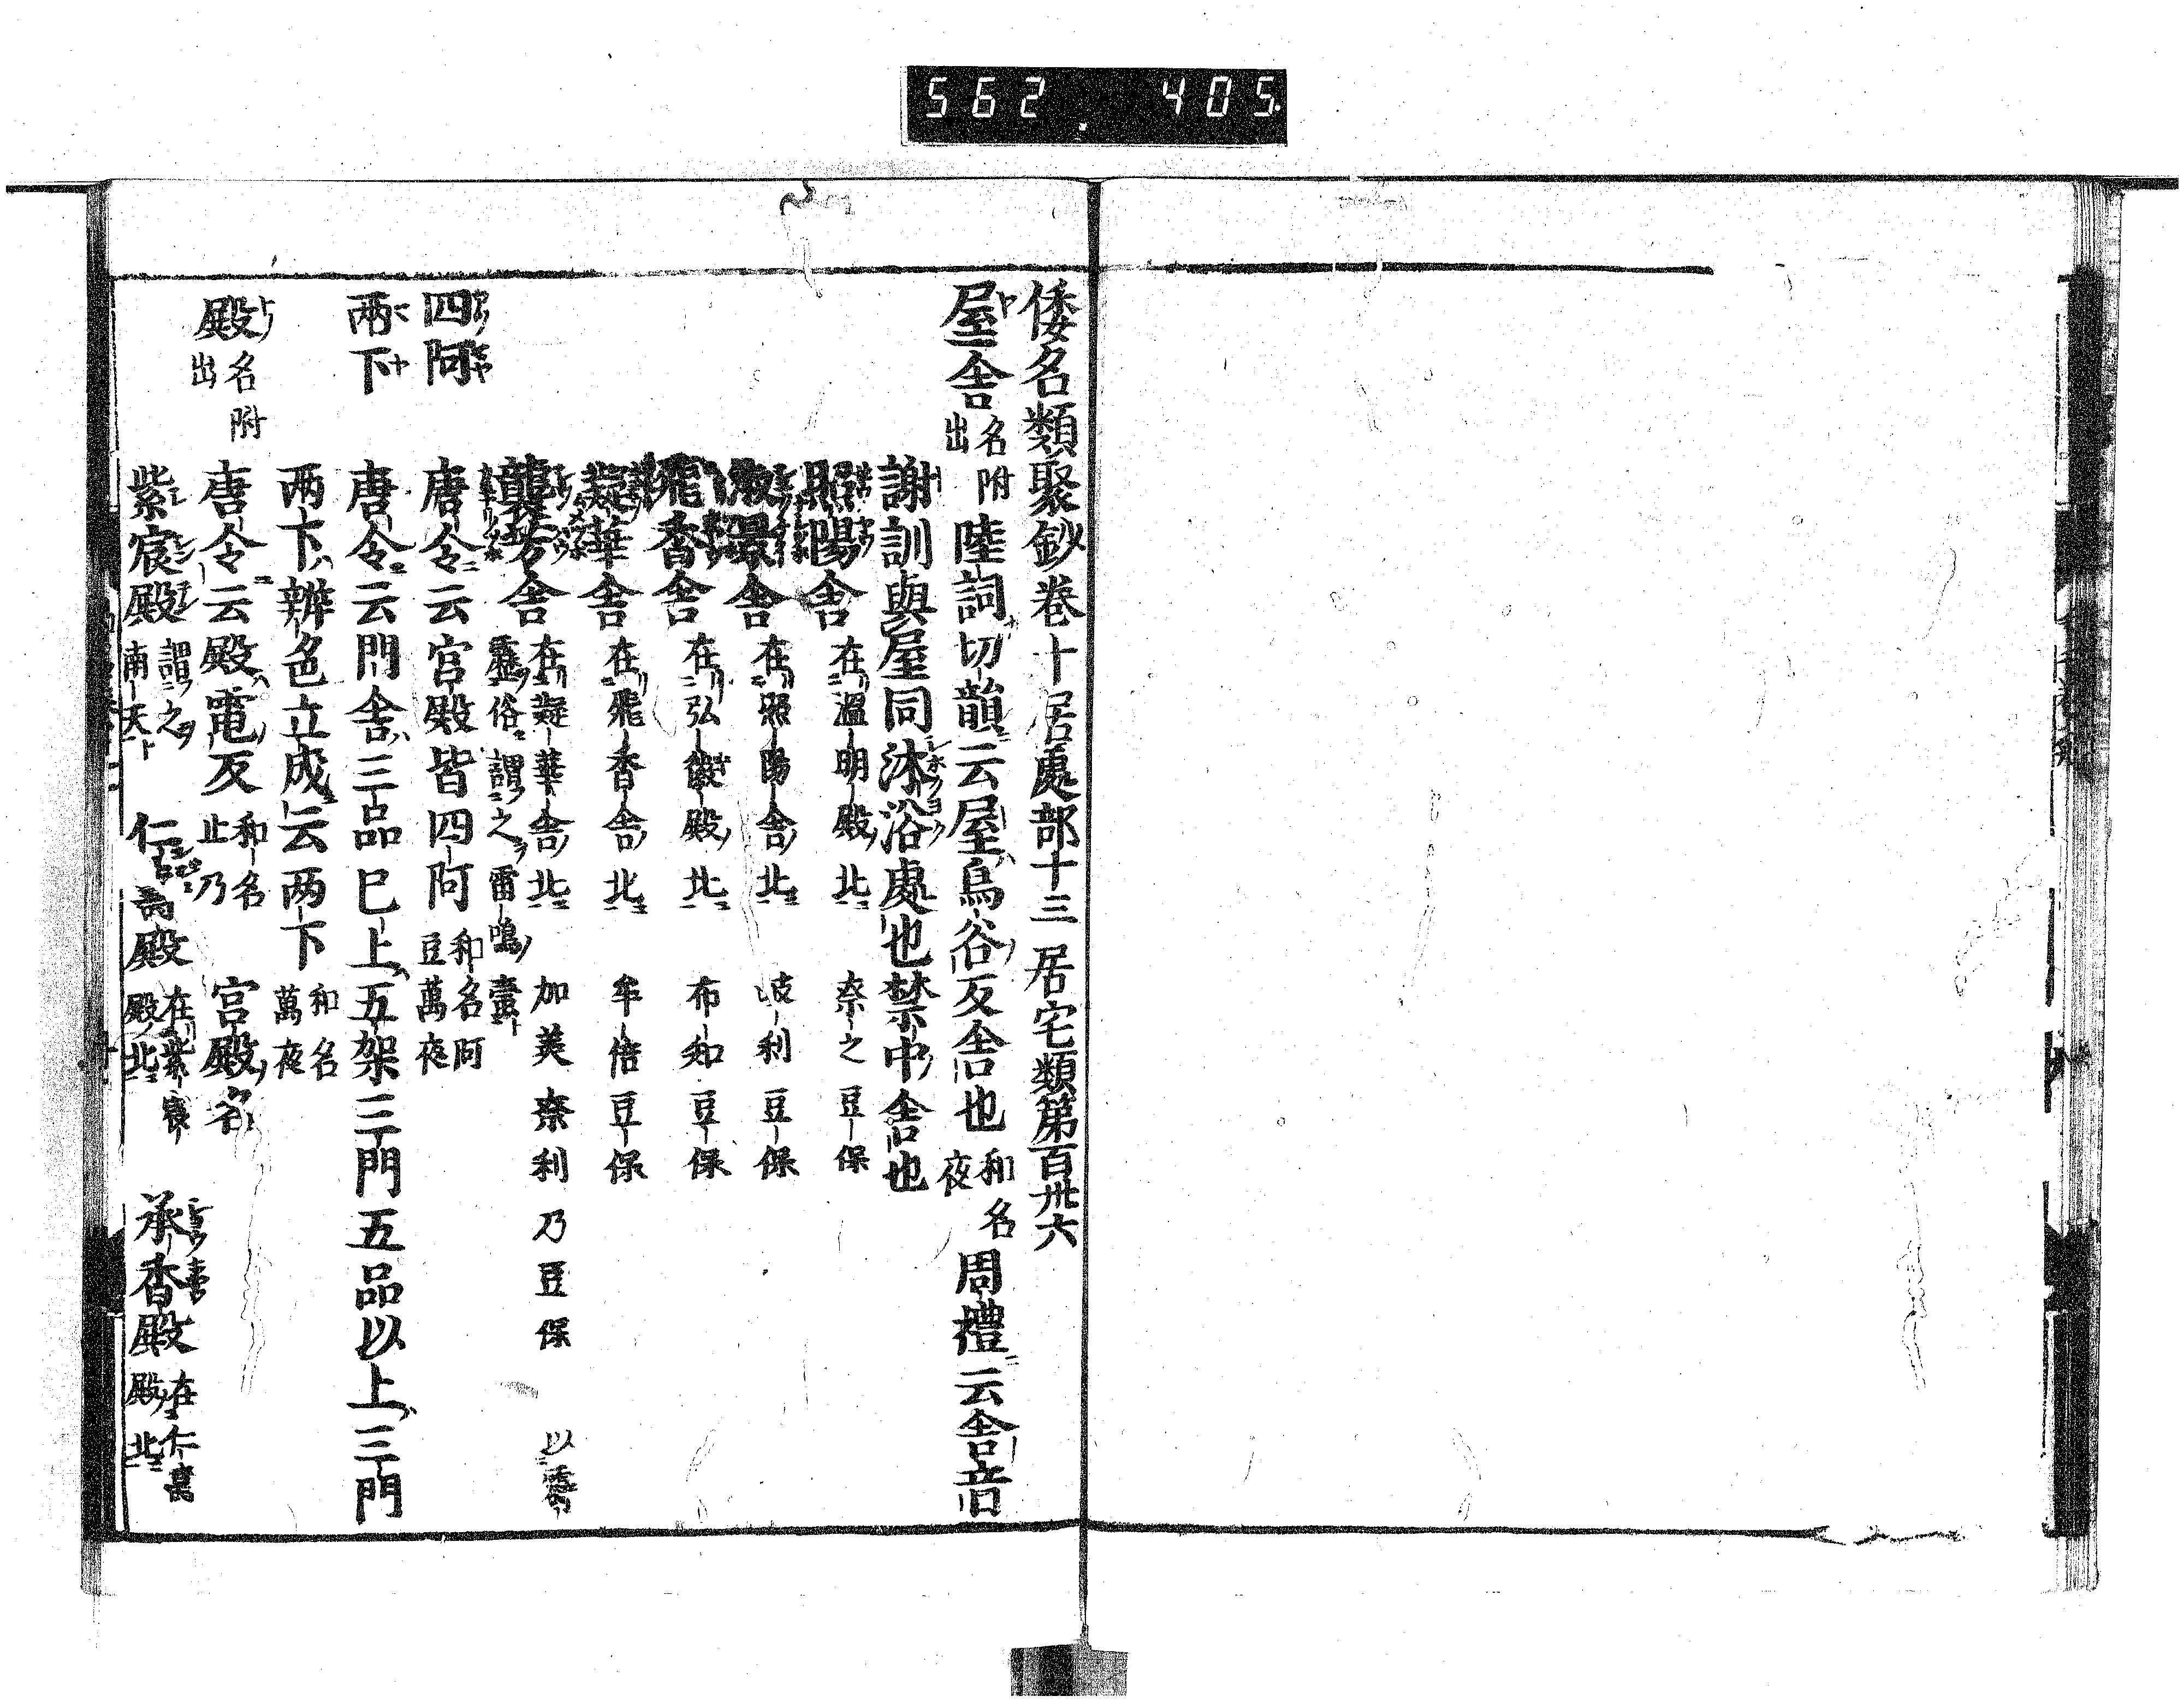 562 405
倭名類聚鈔卷十居處部十三 居宅類第百卅六
屋舎 名附出 陸詞切韻云屋烏谷反舎也 和名夜 周禮云舎音
謝訓與屋同沐浴處也禁中舎也
照陽舎 在温明殿北 奈之豆保
淑景舎 在照陽舎北 岐利豆保
飛香舎 在弘徽殿北 布知豆保
凝華舎 在飛香舎北 牟倍豆保
襲芳舎 在凝華舎北 俗謂之雷鳴壷 加美奈利乃豆保
四阿 唐令云宮殿皆四阿 和名阿豆萬夜
両下 唐令云門舎三品已上五架三門五品以上三門
両下辨色立成云両下 和名萬夜
殿 名附出 唐令云殿電反 和名止乃 宮殿名
紫宸殿 謂之南天 仁壽殿 在紫宸殿北 承香殿 在仁壽殿北